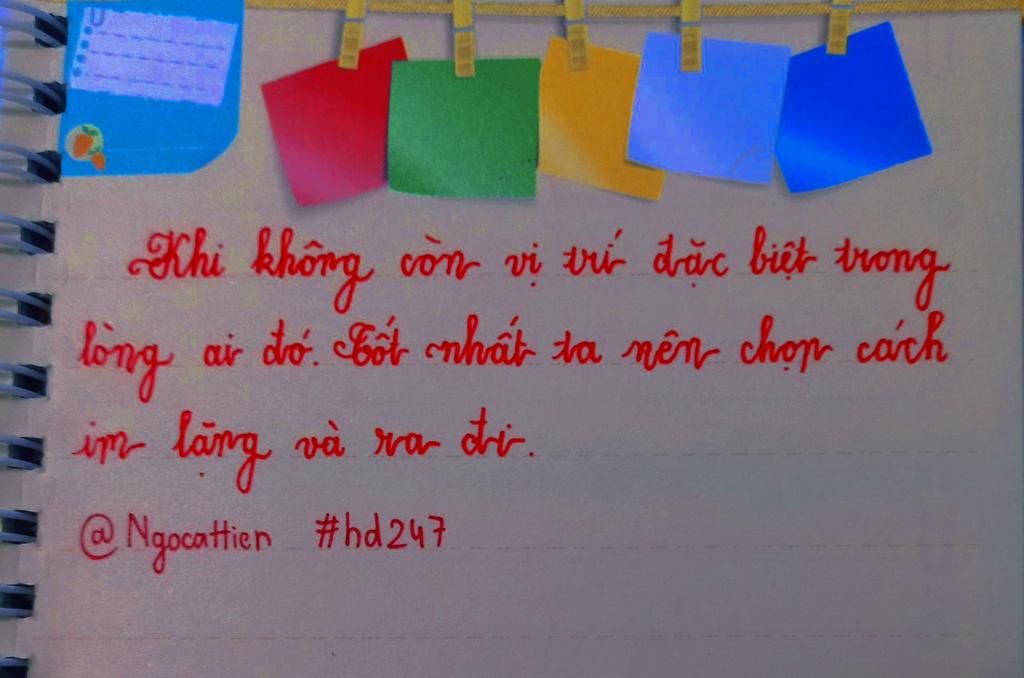 Khi không còn vị trí đặc biệt trong
lòng ai đó. Tốt nhất ta nên chọn cách
im lặng và ra đi.
@NgocaHien #hd247